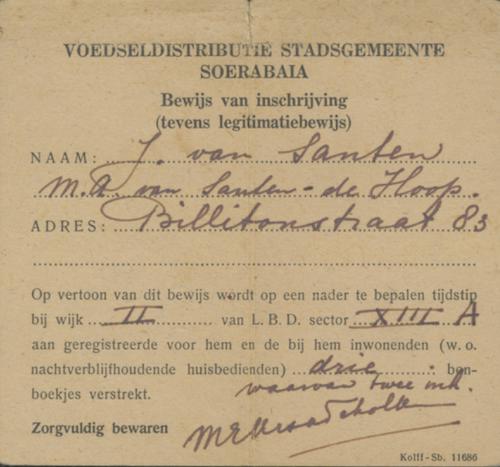 VOEDSELDISTRIBUTIE STADSGEMEENTE
SOERABAIA
Bewijs van inschrijving
(tevens legitimatiebewijs)
NAAM: J. van Santen
M.A. van Santen - de Hoop.
ADRES: Billitonstraat 83
Op vertoon van dit bewijs wordt op een nader te bepalen tijdstip
bij wijk II van L. B. D. sector XIII A
aan geregistreerde voor hem en de bij hem inwonenden (w. o.
nachtverblijfhoudende huisbedienden) drie bon-
boekjes verstrekt. waarvan twee ink.
Zorgvuldig bewaren
Kolff - Sb. 11686